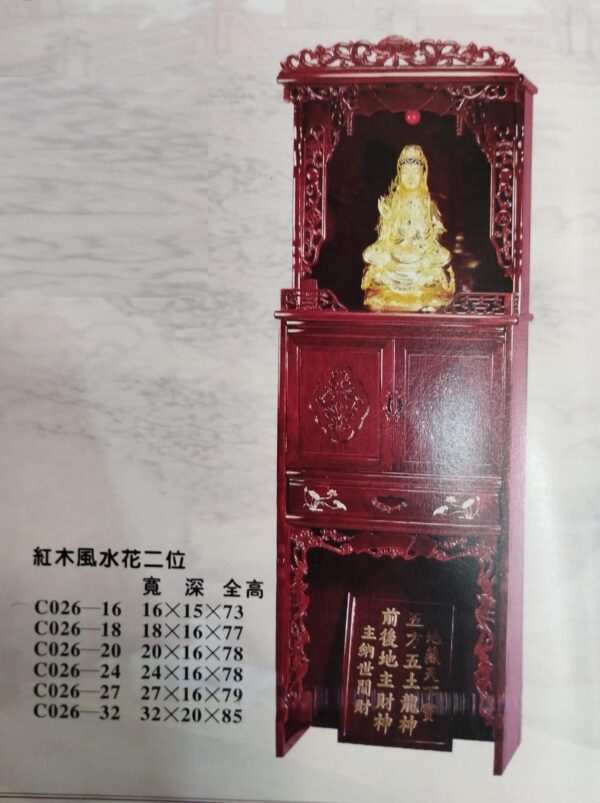 紅木風水花二位
寬 深 全高
C026—16 16×15×73
C026—18 18×16×77
C026—20 20×16×78
C026—24 24×16×78
C026—27 27×16×79
C026—32 32×20×85
地藏天下寶
五方五土龍神
前後地主財神
主納世間財